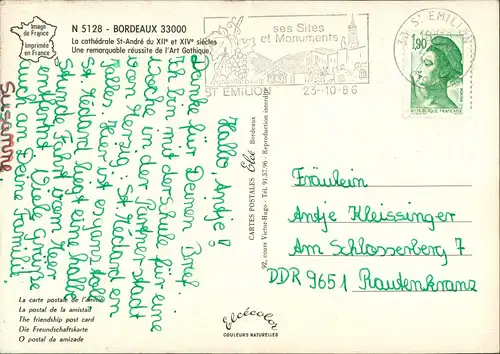 Image
de France
Imprimée
en France
N 5128 - BORDEAUX 33000
La cathédrale St-André du XIIe et XIVe siècles
Une remarquable réussite de l'Art Gothique.
ses Sites
et Monuments
ST EMILION
23-10-86
33 ST EMILION
1,90
REPUBLIQUE FRANÇAISE
Hallo, Antje!
Danke für Deinen Brief.
Ich bin mit der Schule für eine
Woche in der Partnerstadt
von Herzberg: St Médard en
Jalles. Hier ist es ganz toll.
St Médard liegt eine halbe
Stunde Fahrt vom Meer
entfernt. Viele Grüße
auch an Deine Familie!
Susanne
CARTES POSTALES Elcé Bordeaux
92, cours Victor-Hugo - Tél. 91.57.96 - Reproduction interdite
Fräulein
Antje Kleissinger
Am Schlossberg 7
DDR 9651 Rautenkranz
La carte postale de l'amitié
La postal de la amistad
The friendship post card
Die Freundschaftskarte
O postal da amizade
Elcécolor
COULEURS NATURELLES